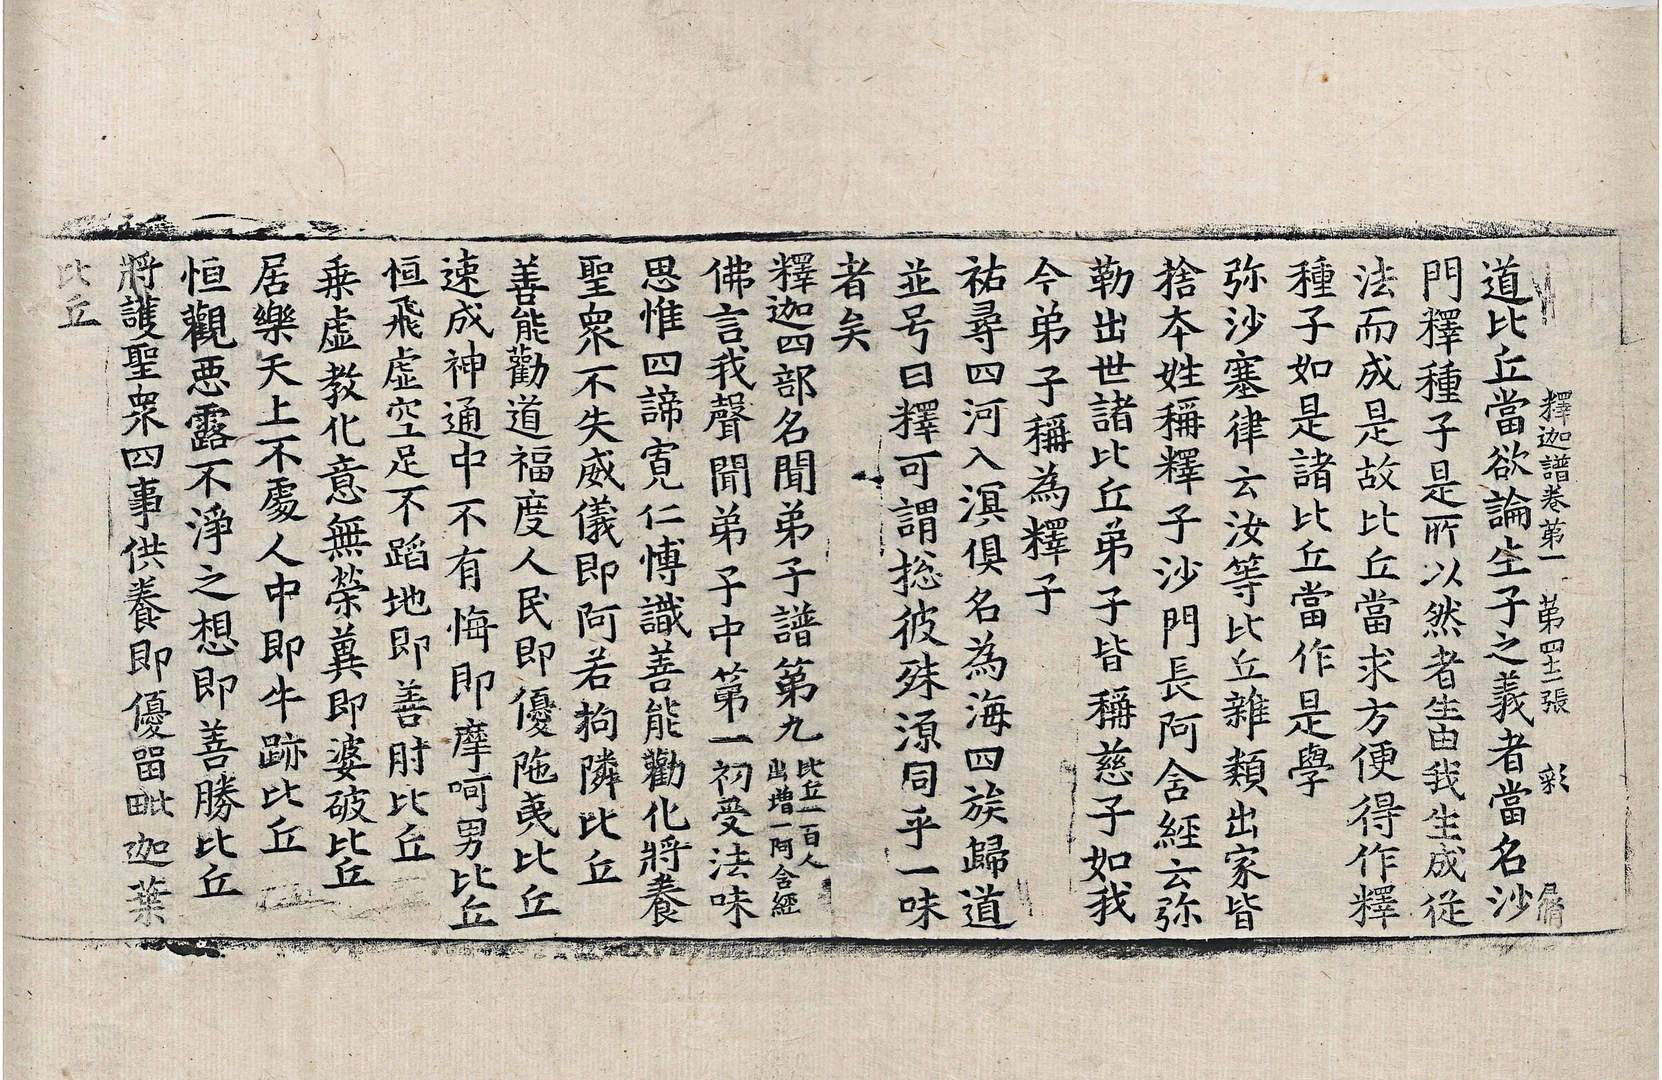 釋迦譜卷第一 第四十二張 彩
道比丘當欲論生子之義者當名沙
門釋種子是所以然者生由我生成從
法而成是故比丘當求方便得作釋
種子如是諸比丘當作是學
弥沙塞律云汝等比丘雜類出家皆
捨夲姓稱釋子沙門長阿含經云弥
勒出世諸比丘弟子皆稱慈子如我
今弟子稱為釋子
祐尋四河入溟俱名為海四族歸道
並号曰釋可謂捴彼殊源同乎一味
者矣
釋迦四部名聞弟子譜第九 比丘一百人出增一阿含經
佛言我聲聞弟子中第一初受法味
思惟四諦寬仁愽識善能勸化將養
聖衆不失威儀即阿若拘隣比丘
善能勸道福度人民即優陁夷比丘
速成神通中不有悔即摩呵男比丘
恒飛虛空足不蹈地即善肘比丘
乗虛教化意無榮兾即婆破比丘
居樂天上不處人中即牛跡比丘
恒觀惡露不淨之想即善勝比丘
將護聖衆四事供養即優留毗迦葉
比丘